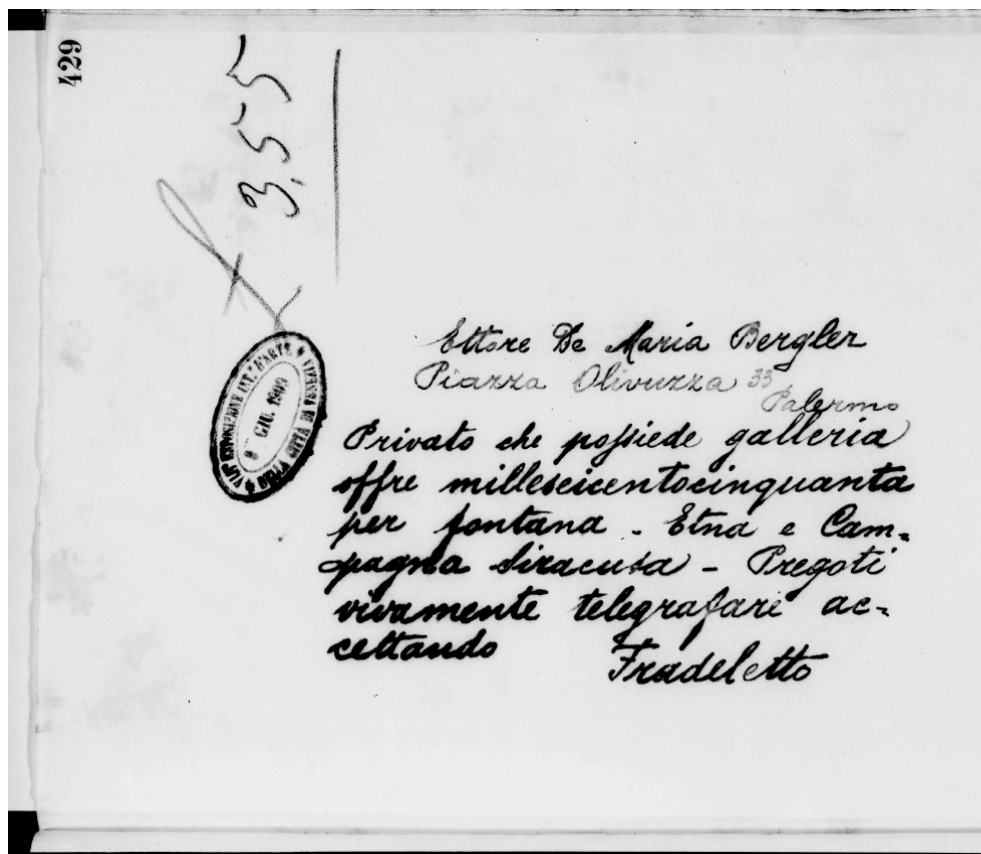 429
3,55
VIIIª ESPOSIZIONE INT.LE D'ARTE
DELLA CITTÀ DI VENEZIA
GIU. 1909
Ettore De Maria Bergler
Piazza Olivuzza 33
Palermo
Privato che possiede galleria
offre milleseicentocinquanta
per fontana - Etna e Cam=
pagna Siracusa - Pregoti
vivamente telegrafare ac=
cettando
Fradeletto